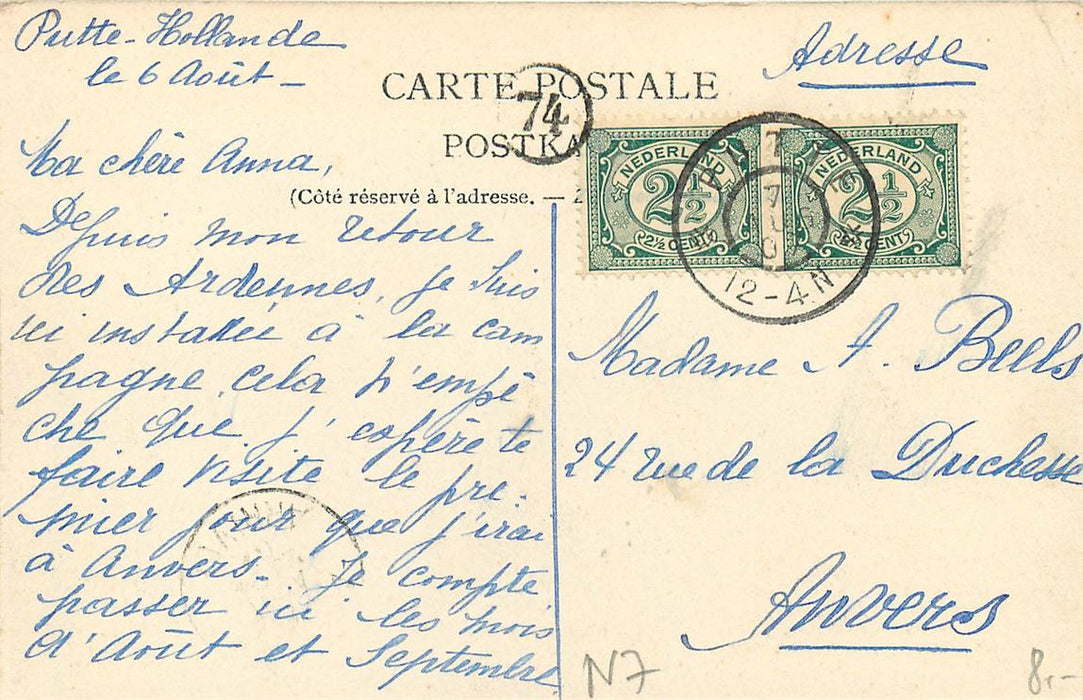 Putte-Hollande
le 6 Août -
Adresse
CARTE POSTALE
74
POSTKA
(Côté réservé à l'adresse. —
NEDERLAND
2½
2½ CENT
NEDERLAND
2½
2½ CENT
PUTTE
12-4N
Ma chère Anna,
Depuis mon retour
des Ardennes, je suis
ici installée à la cam
pagne, cela n'empê
che que j'espère te
faire visite le pre-
mier jour que j'irai
à Anvers. Je compte
passer ici les mois
d'Août et Septembre
Madame A. Beels
24 rue de la Duchesse
Anvers
N7
8,-